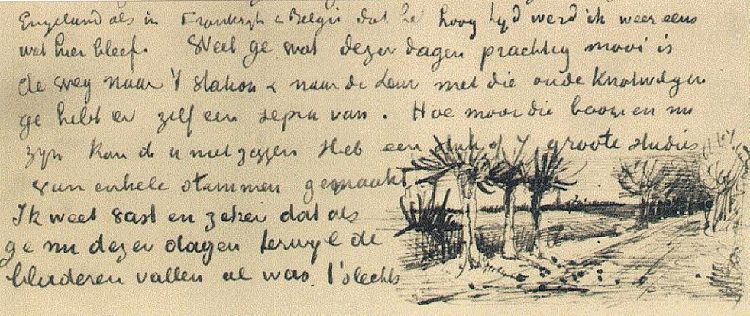 Engeland als in Frankrijk & België dat het hoog tijd werd ik weer eens
wat hier bleef. Weet ge wat dezer dagen prachtig mooi is
de weg naar 't station & naar de Leur met die oude knotwilgen
ge hebt er zelf een sepia van. Hoe mooi die boomen nu
zijn kan ik u niet zeggen Heb een stuk of 7 groote studies
van enkele stammen gemaakt
Ik weet vast en zeker dat als
ge nu dezer dagen terwijl de
bladeren vallen al was 't slechts